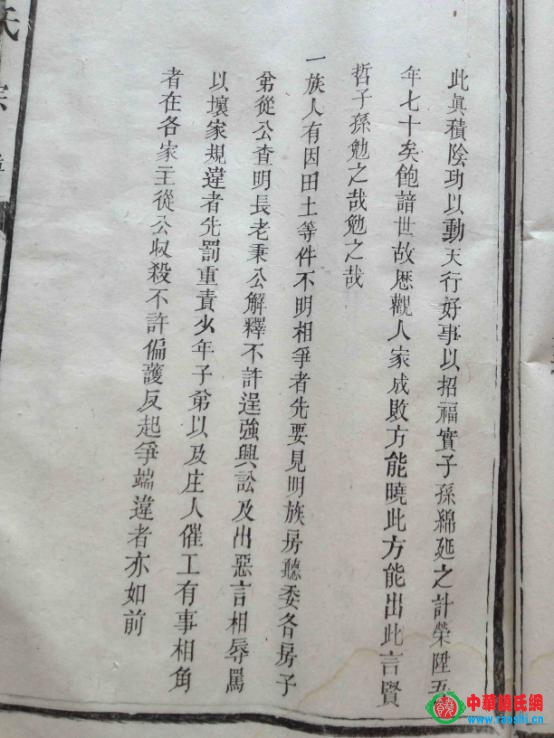 此眞積陰功以動天行好事以招福實子孫綿延之計榮陞五
年七十矣飽諳世故歷觀人家成敗方能曉此方能出此言賢
哲子孫勉之哉勉之哉
一族人有因田土等件不明相爭者先要見明族房聽委各房子
弟從公查明長老秉公解釋不許逞強興訟及出惡言相辱罵
以壞家規違者先罰重責少年子弟以及庄人催工有事相角
者在各家主從公収殺不許偏護反起爭端違者亦如前
氏 宗
中華饒氏網
www.raoshi.cn